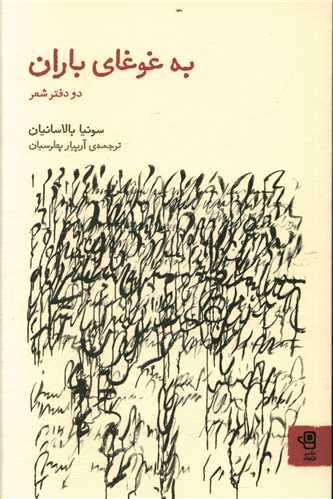 به غوغای باران
دو دفتر شعر
سونیا بالاسانیان
ترجمه‌ی آرپیار پطرسیان